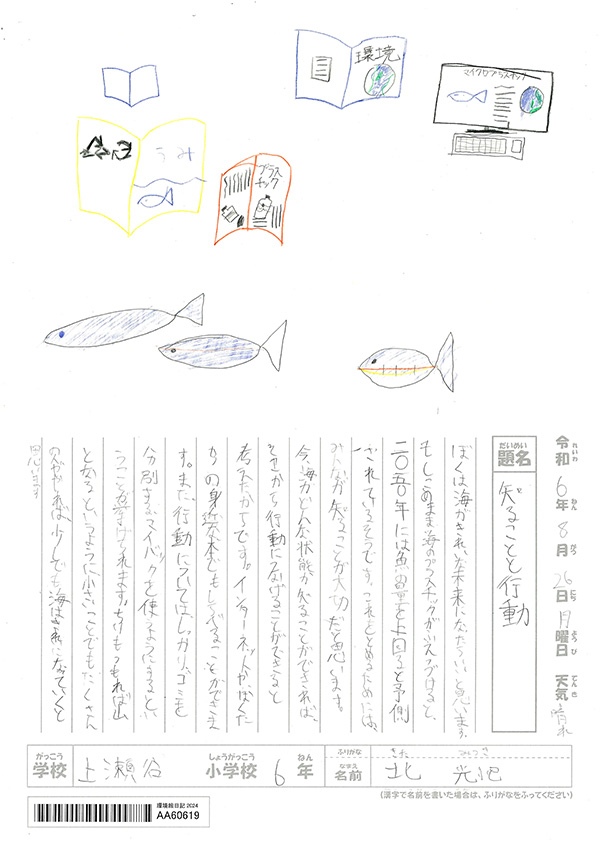 環境
マイクロプラスチック
うみ
プラス
チック
令和6年8月26日月曜日 天気 晴れ
れいわ ねん がつ にち ようび てんき
だいめい
題名 知ることと行動
ぼくは海がきれいな未来になったらいいと思います。
もしこのまま海のプラスチックがふえつづけると、
二〇五〇年には魚の量を上回ると予側
されているそうです。これをとめるためには、
みんなが知ることが大切だと思います。
今、海がどんな状態か知ることができれば、
そこから行動につなげることができると
考えたからです。インターネットやぼくた
ちの身近な本でもしらべることができま
す。また、行動についてはしっかり、ゴミを
分別する、マイバックを使うようにするとい
うことが挙げられます。ちりもつもれば山
となるというように小さいことでもたくさん
の人がやれば、少しでも海はきれいになっていくと
思います
がっこう しょうがっこう ねん ふりがな きた
学校 上瀬谷 小学校 6年 なまえ 名前 北
(漢字で名前を書いた場合は、ふりがなをふってください)
環境絵日記2024
AA60619